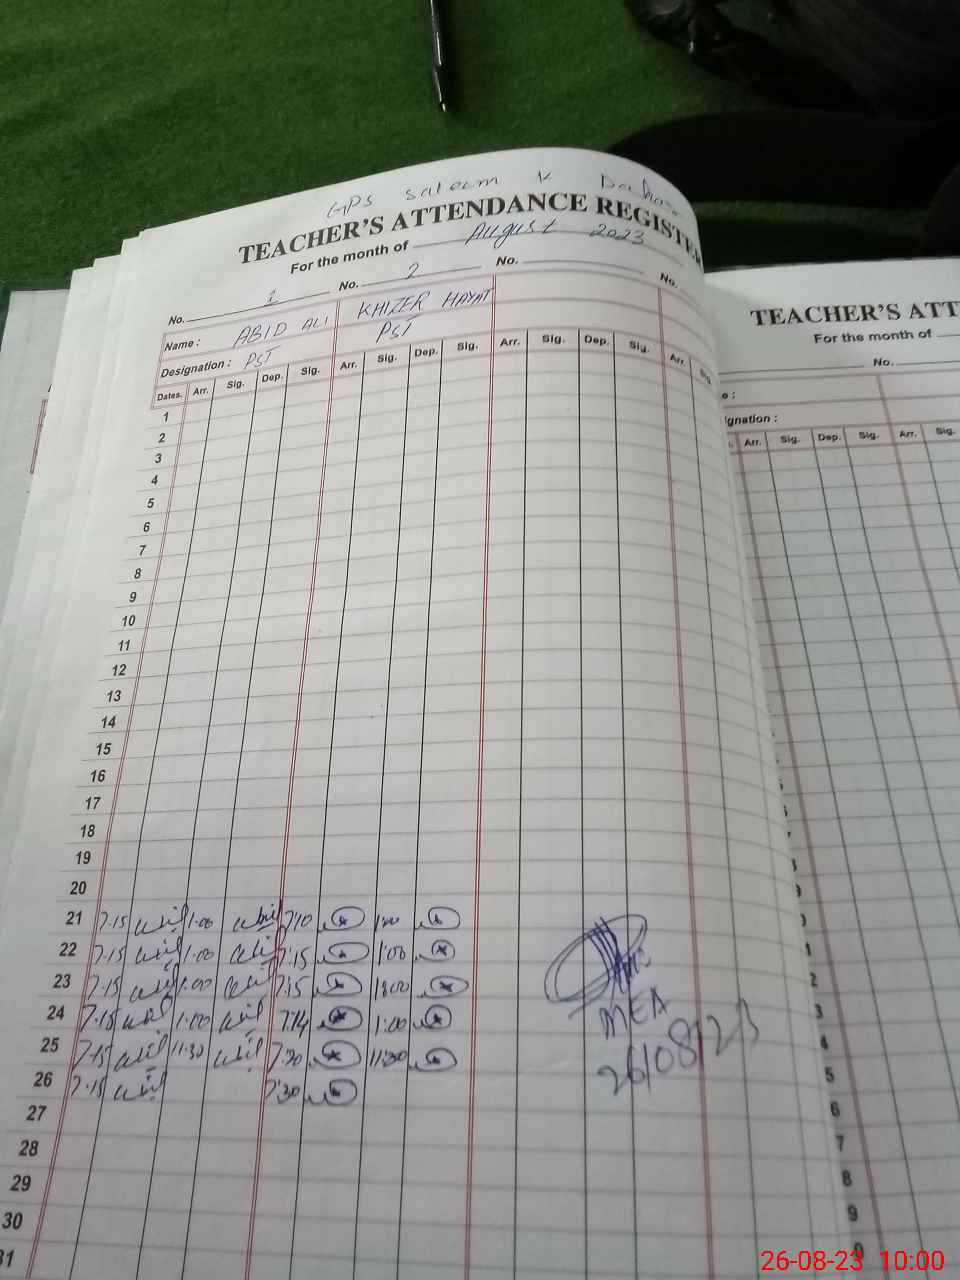 GPS Saleem K
TEACHER'S ATTENDANCE REGISTER
For the month of August 2023
No. 1 No. 2 No. No.
Name : ABID ALI KHIZER HAYAT
Designation : PST PST
Dates. Arr. Sig. Dep. Sig. Arr. Sig. Dep. Sig. Arr. Sig. Dep. Sig. Arr. Sig
1
2
3
4
5
6
7
8
9
10
11
12
13
14
15
16
17
18
19
20
21 7.15 1.00 7:10
22 7.15 1.00 7:15 1:00
23 7.15 1.00 7:15
24 7.15 1.00 7:14 1:00
25 7.15 11.30 7:20 11:30
26 7.15 7:30
27
28
29
30
31
MEA
26/08/23
TEACHER'S ATT
For the month of
No.
e :
ignation :
Arr. Sig. Dep. Sig. Arr. Sig.
1
2
3
4
5
6
7
8
9
26-08-23 10:00